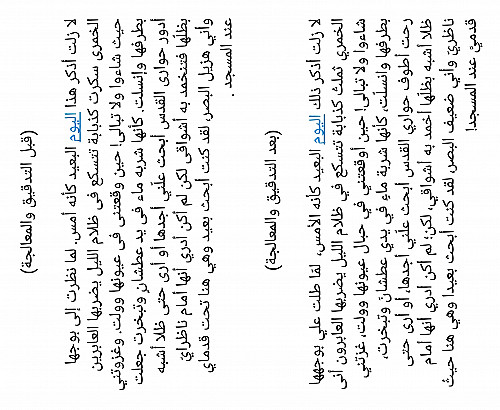 (قبل التدقيق والمعالجة)
لا زلت أذكر هذا اليوم البعيد كأنه أمس. لما نظرت إلى بوجهها
الخمرى سكرت كذبابة تتسكع فى ظلام الليل يضربها العابرين
حيث شاءوا ولا تبالى! حين وقعتنى فى عيونها وولت. وغزوتني
بطرفها وانسلت. كأنها شربه ماء فى يد عطشان وتبخرت جعلت
أدور حوارى القدس أبحث علني أجدها أو أرى حتى ظلا أشبه
بظلها فتنخمد به أشواقى لكن لم أكن أدري أنها أمام ناظراي
وأني هزيل البصر. لقد كنت أبحث بعيد وهي هنا تحت قدماي
عند المسجد .
(بعد التدقيق والمعالجة)
لا زلت أذكر ذلك اليوم البعيد كأنه الأمس، لمّا طلت علي بوجهها
الخمري ثملت كذبابة تتسكع في ظلام الليل يضربها العابرون أنى
شاءوا ولا تبالي! حين أوقعتني في حبال عيونها وولت، غزتني
بطرفها وانسلت، كأنها شربة ماءٍ في يدي عطشانٍ وتبخرت،
رحت أطوف حواري القدس أبحث علني أجدها، أو أرى حتى
ظلا أشبه بظلها أخمد به أشواقي، لكن؛ لم أكن أدري أنها أمام
ناظريّ وأني ضعيف البصر لقد كنت أبحث بعيدا وهي هنا حيث
قدميّ عند المسجد!